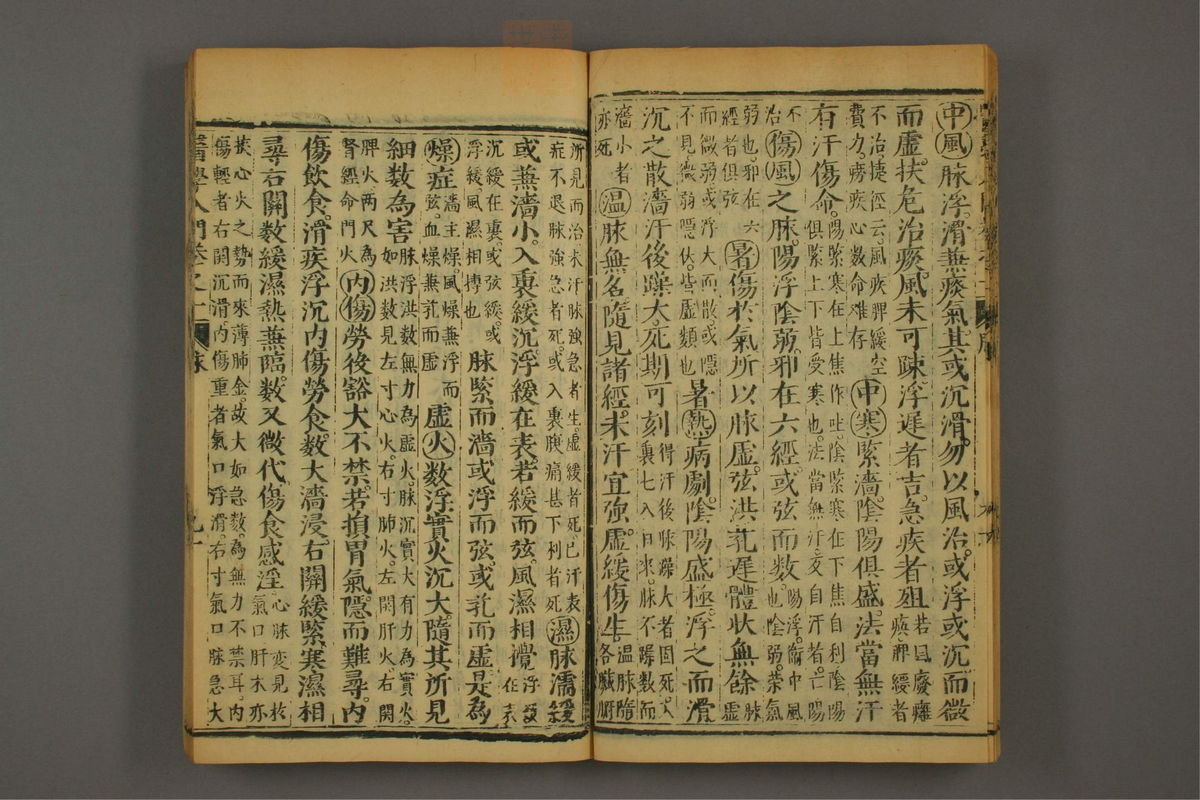 中風脉浮滑兼痰氣其或沉滑勿以風治或浮或沉而微
而虚扶危治痰風未可踈浮遲者吉急疾者殂若因廢癱瘓脾緩者
不治捷徑云風疾脾緩空費力癆疾心数命难存中寒緊濇陰陽俱盛法當無汗
有汗傷命陽緊寒在上焦作吐陰緊寒在下焦自利陰陽俱緊上下皆受寒也法當無汗反自汗者亡陽
不治傷風之脉陽浮陰弱邪在六經或弦而数陽浮衛中風也陰弱榮氣
弱也邪在六經者俱弦暑傷於氣所以脉虚弦洪芤遲體狀無餘虚脉
而微弱或浮大而散或隱不見微弱隱伏皆虚類也暑熱病劇陰陽盛極浮之而滑
沉之散濇汗後躁大死期可刻得汗後脉躁大者固死入裏七八日來脉不躁数而
濇小者亦死温脉無名隨見諸經未汗宜強虚緩傷生温脉隨各臟腑
所見而治未汗脉強急者生虚緩者死已汗表症不退脉強急者死或入裏腹痛甚下利者死濕脉濡緩
或兼濇小入裏緩沉浮緩在表若緩而弦風濕相攪浮緩在表
沉緩在裏或弦緩或浮緩風濕相搏也脉緊而濇或浮而弦或芤而虚是為
燥症濇主燥風燥兼浮而弦血燥兼芤而虚虚火数浮實火沉大隨其所見
細数為害脉浮洪数無力為虚火脉沉實大有力為實火如洪数見左寸心火右寸肺火左関肝火右関
脾火两尺為腎經命門火内傷勞後豁大不禁若損胃氣隱而難尋内
傷飲食滑疾浮沉内傷勞食数大濇浸右關緩緊寒濕相
尋右關数緩濕熱兼臨数又微代傷食感淫心脉变見於氣口肝木亦
挾心火之勢而來薄肺金故大如急数為無力不禁耳内傷輕者右関沉滑内傷重者氣口浮滑右寸氣口脉急大
醫學入門卷之一 脉